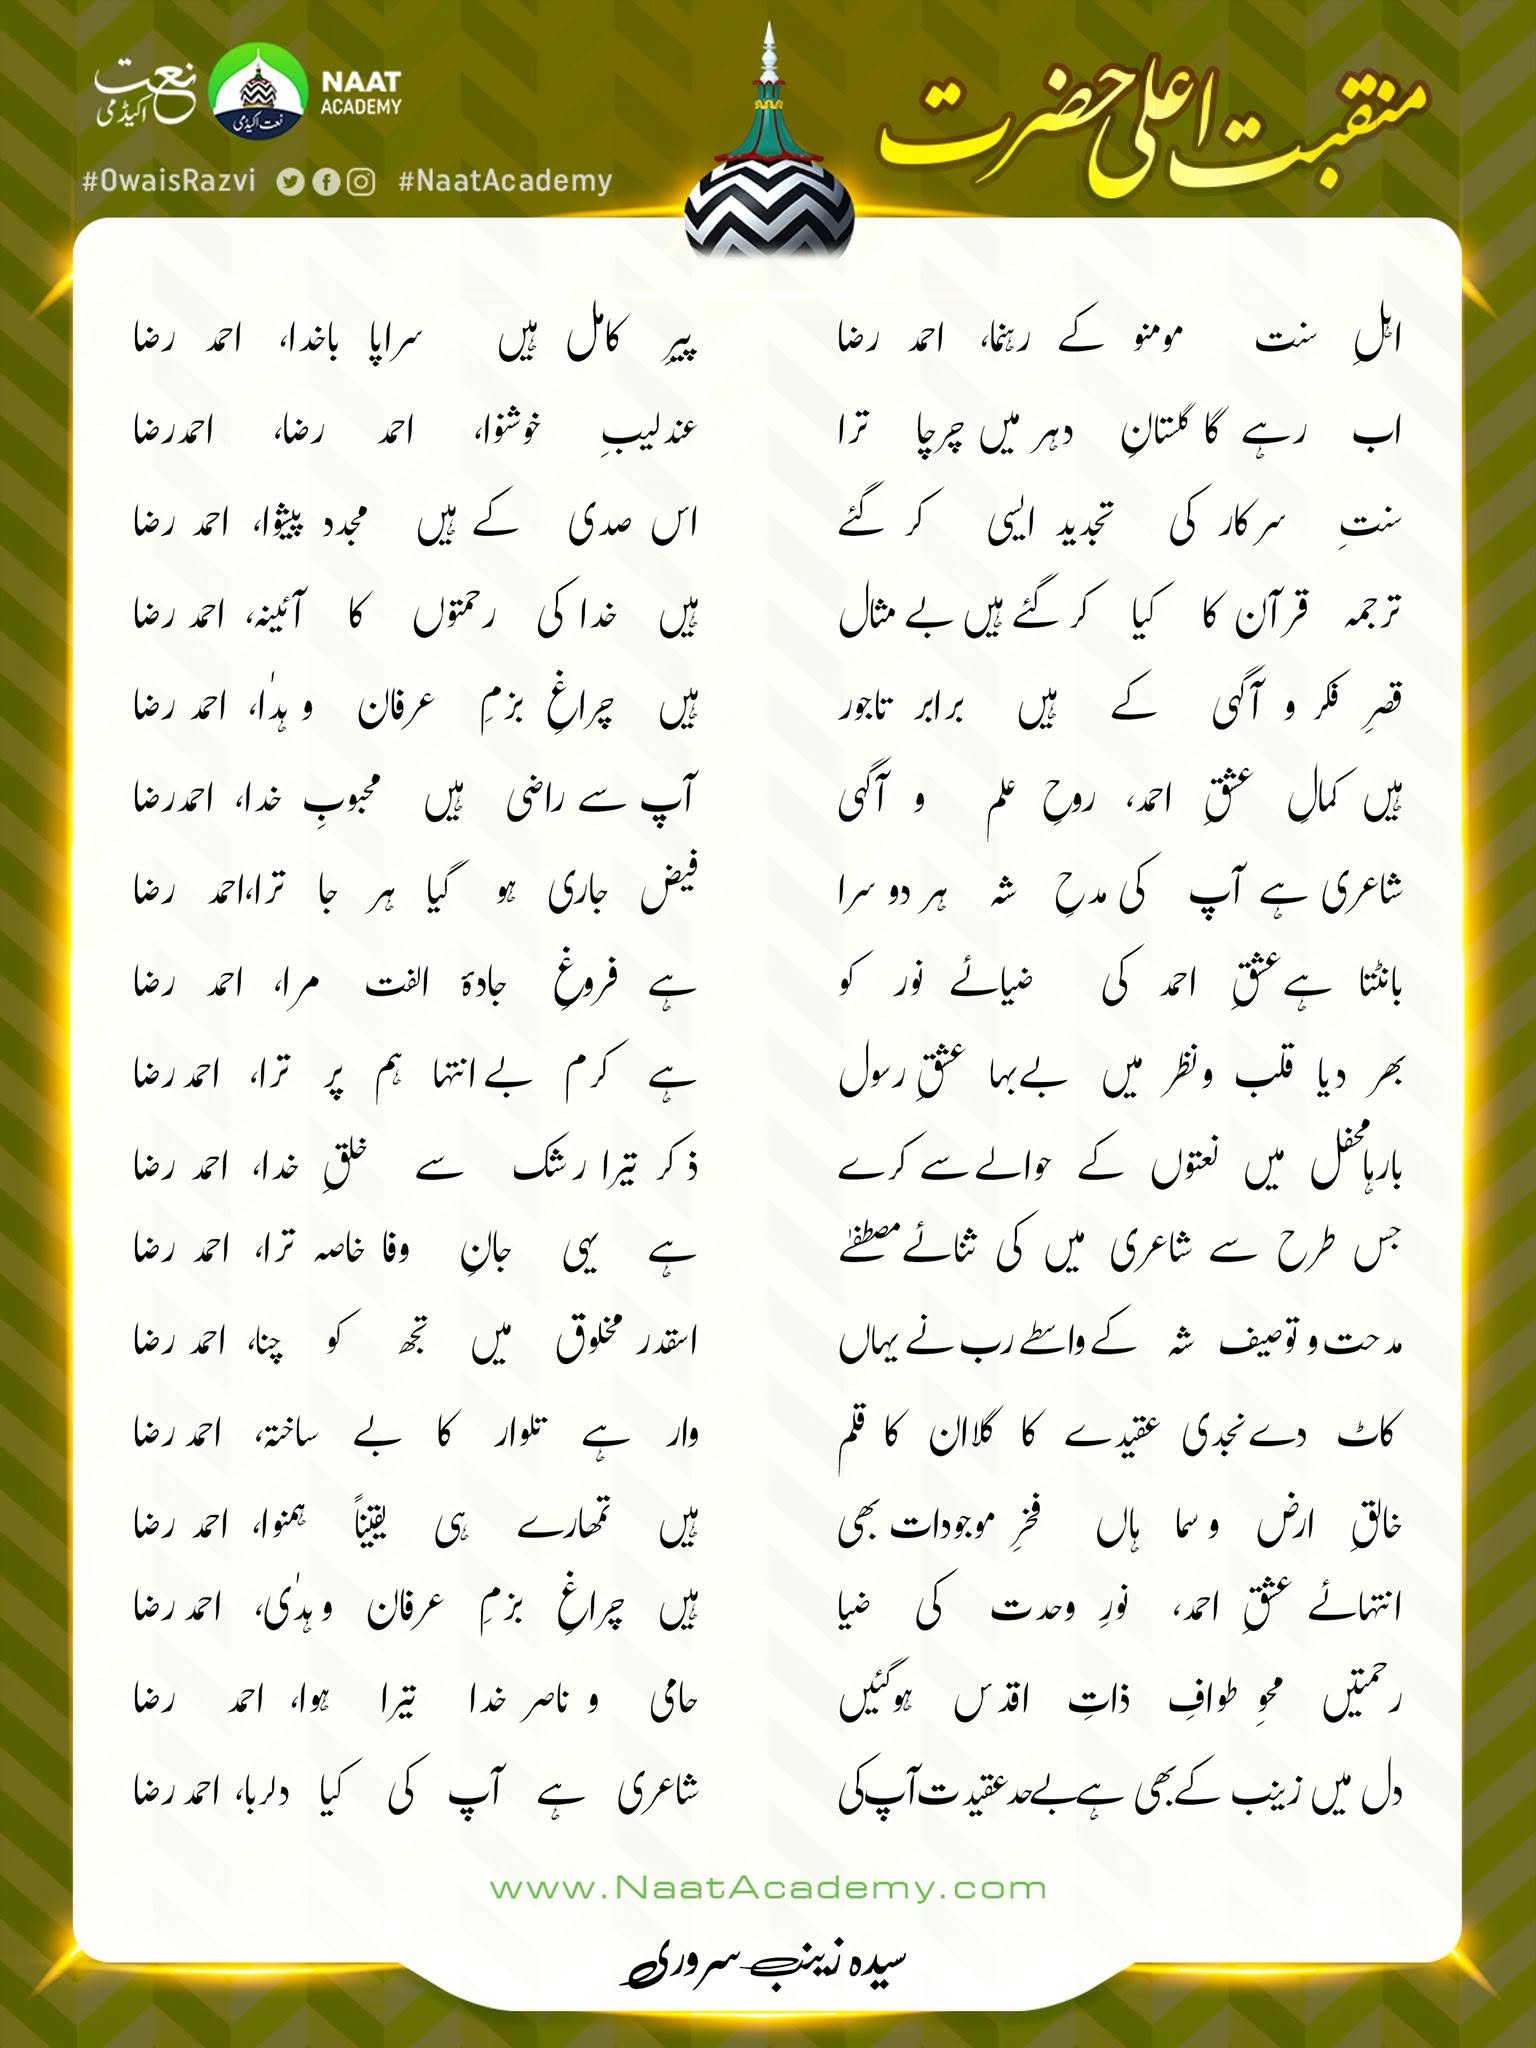 منقبت اعلیٰ حضرت
نعت اکیڈمی
نعت اکیڈمی
NAAT ACADEMY
#OwaisRazvi #NaatAcademy
اہلِ سنت مومنو کے رہنما، احمد رضا پیرِ کامل ہیں سراپا باخدا، احمد رضا
اب رہے گا گلستانِ دہر میں چرچا ترا عندلیبِ خوشنوا، احمد رضا، احمدرضا
سنتِ سرکار کی تجدید ایسی کر گئے اس صدی کے ہیں مجدد پیشوا، احمد رضا
ترجمہ قرآن کا کیا کر گئے ہیں بے مثال ہیں خدا کی رحمتوں کا آئینہ، احمد رضا
قصرِ فکر و آگہی کے ہیں برابر تاجور ہیں چراغِ بزمِ عرفان و ہدیٰ، احمد رضا
ہیں کمالِ عشقِ احمد، روحِ علم و آگہی آپ سے راضی ہیں محبوبِ خدا، احمدرضا
شاعری ہے آپ کی مدحِ شہ ہر دو سرا فیض جاری ہو گیا ہر جا ترا،احمد رضا
بانٹتا ہے عشقِ احمد کی ضیائے نور کو ہے فروغِ جادۂ الفت مرا، احمد رضا
بھر دیا قلب ونظر میں بےبہا عشقِ رسول ہے کرم بےانتہا ہم پر ترا، احمد رضا
بارہامحفل میں نعتوں کے حوالے سے کرے ذکر تیرا رشک سے خلقِ خدا، احمد رضا
جس طرح سے شاعری میں کی ثنائے مصطفےٰ ہے یہی جانِ وفا خاصہ ترا، احمد رضا
مدحت و توصیف شہ کے واسطے رب نے یہاں اسقدر مخلوق میں تجھ کو چنا، احمد رضا
کاٹ دے نجدی عقیدے کا گلاان کا قلم وار ہے تلوار کا بے ساختہ، احمد رضا
خالقِ ارض وسما ہاں فخرِ موجودات بھی ہیں تمھارے ہی یقیناً ہمنوا، احمد رضا
انتہائے عشقِ احمد، نورِ وحدت کی ضیا ہیں چراغِ بزمِ عرفان وہدیٰ، احمد رضا
رحمتیں محوِ طوافِ ذاتِ اقدس ہوگئیں حامی و ناصر خدا تیرا ہوا، احمد رضا
دل میں زینب کےبھی ہےبےحدعقیدت آپ کی شاعری ہے آپ کی کیا دلربا، احمد رضا
www.NaatAcademy.com
سیدہ زینب سروری